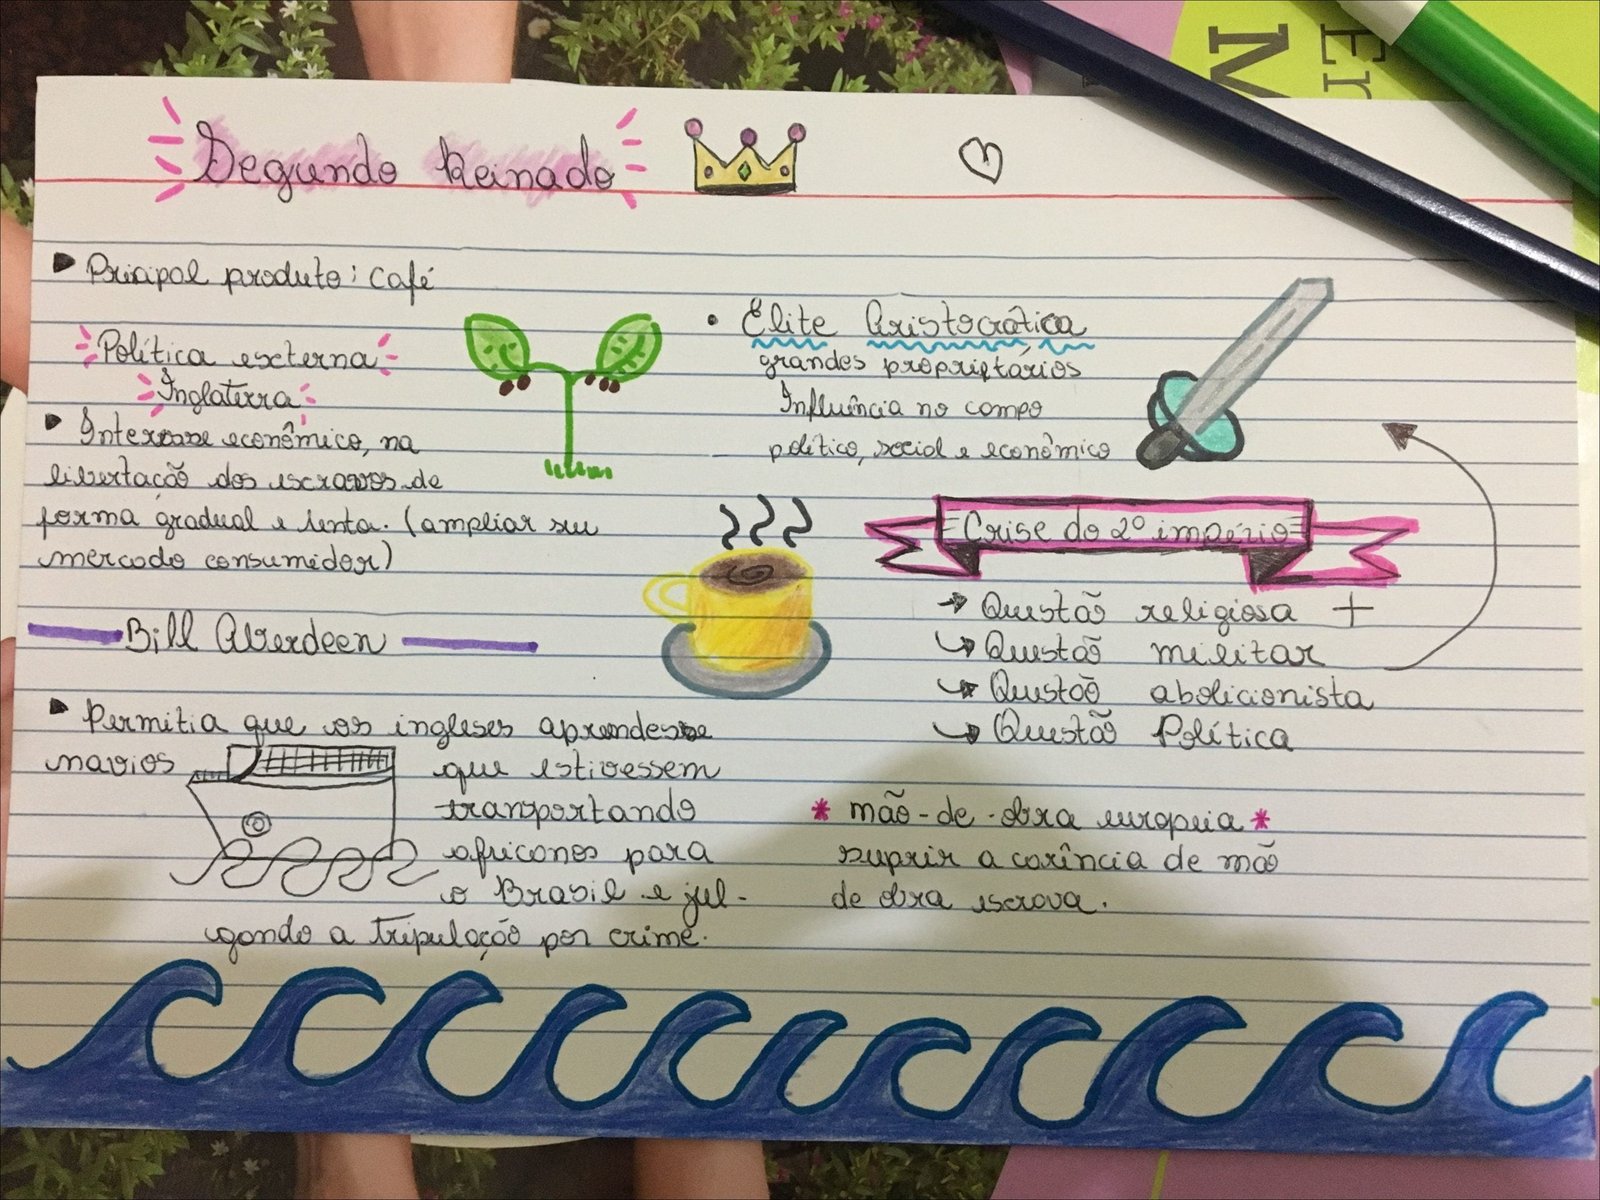 Segundo Reinado
Pricipal produto: Café
Política externa
Inglaterra
Interesse econômico, na
libertação dos escravos de
forma gradual e lenta. (ampliar seu
mercado consumidor)
Bill Aberdeen
Permitia que os ingleses aprendesse
navios
que estivessem
transportando
africanos para
o Brasil e jul-
gando a tripulação por crime.
Elite Aristocratica
grandes proprietários
Influência no campo
político, social e econômico
Crise do 2º império
Questão religiosa +
Questão militar
Questão abolicionista
Questão Política
* mão-de-obra europeia *
suprir a carência de mão
de obra escrava.
Er
M